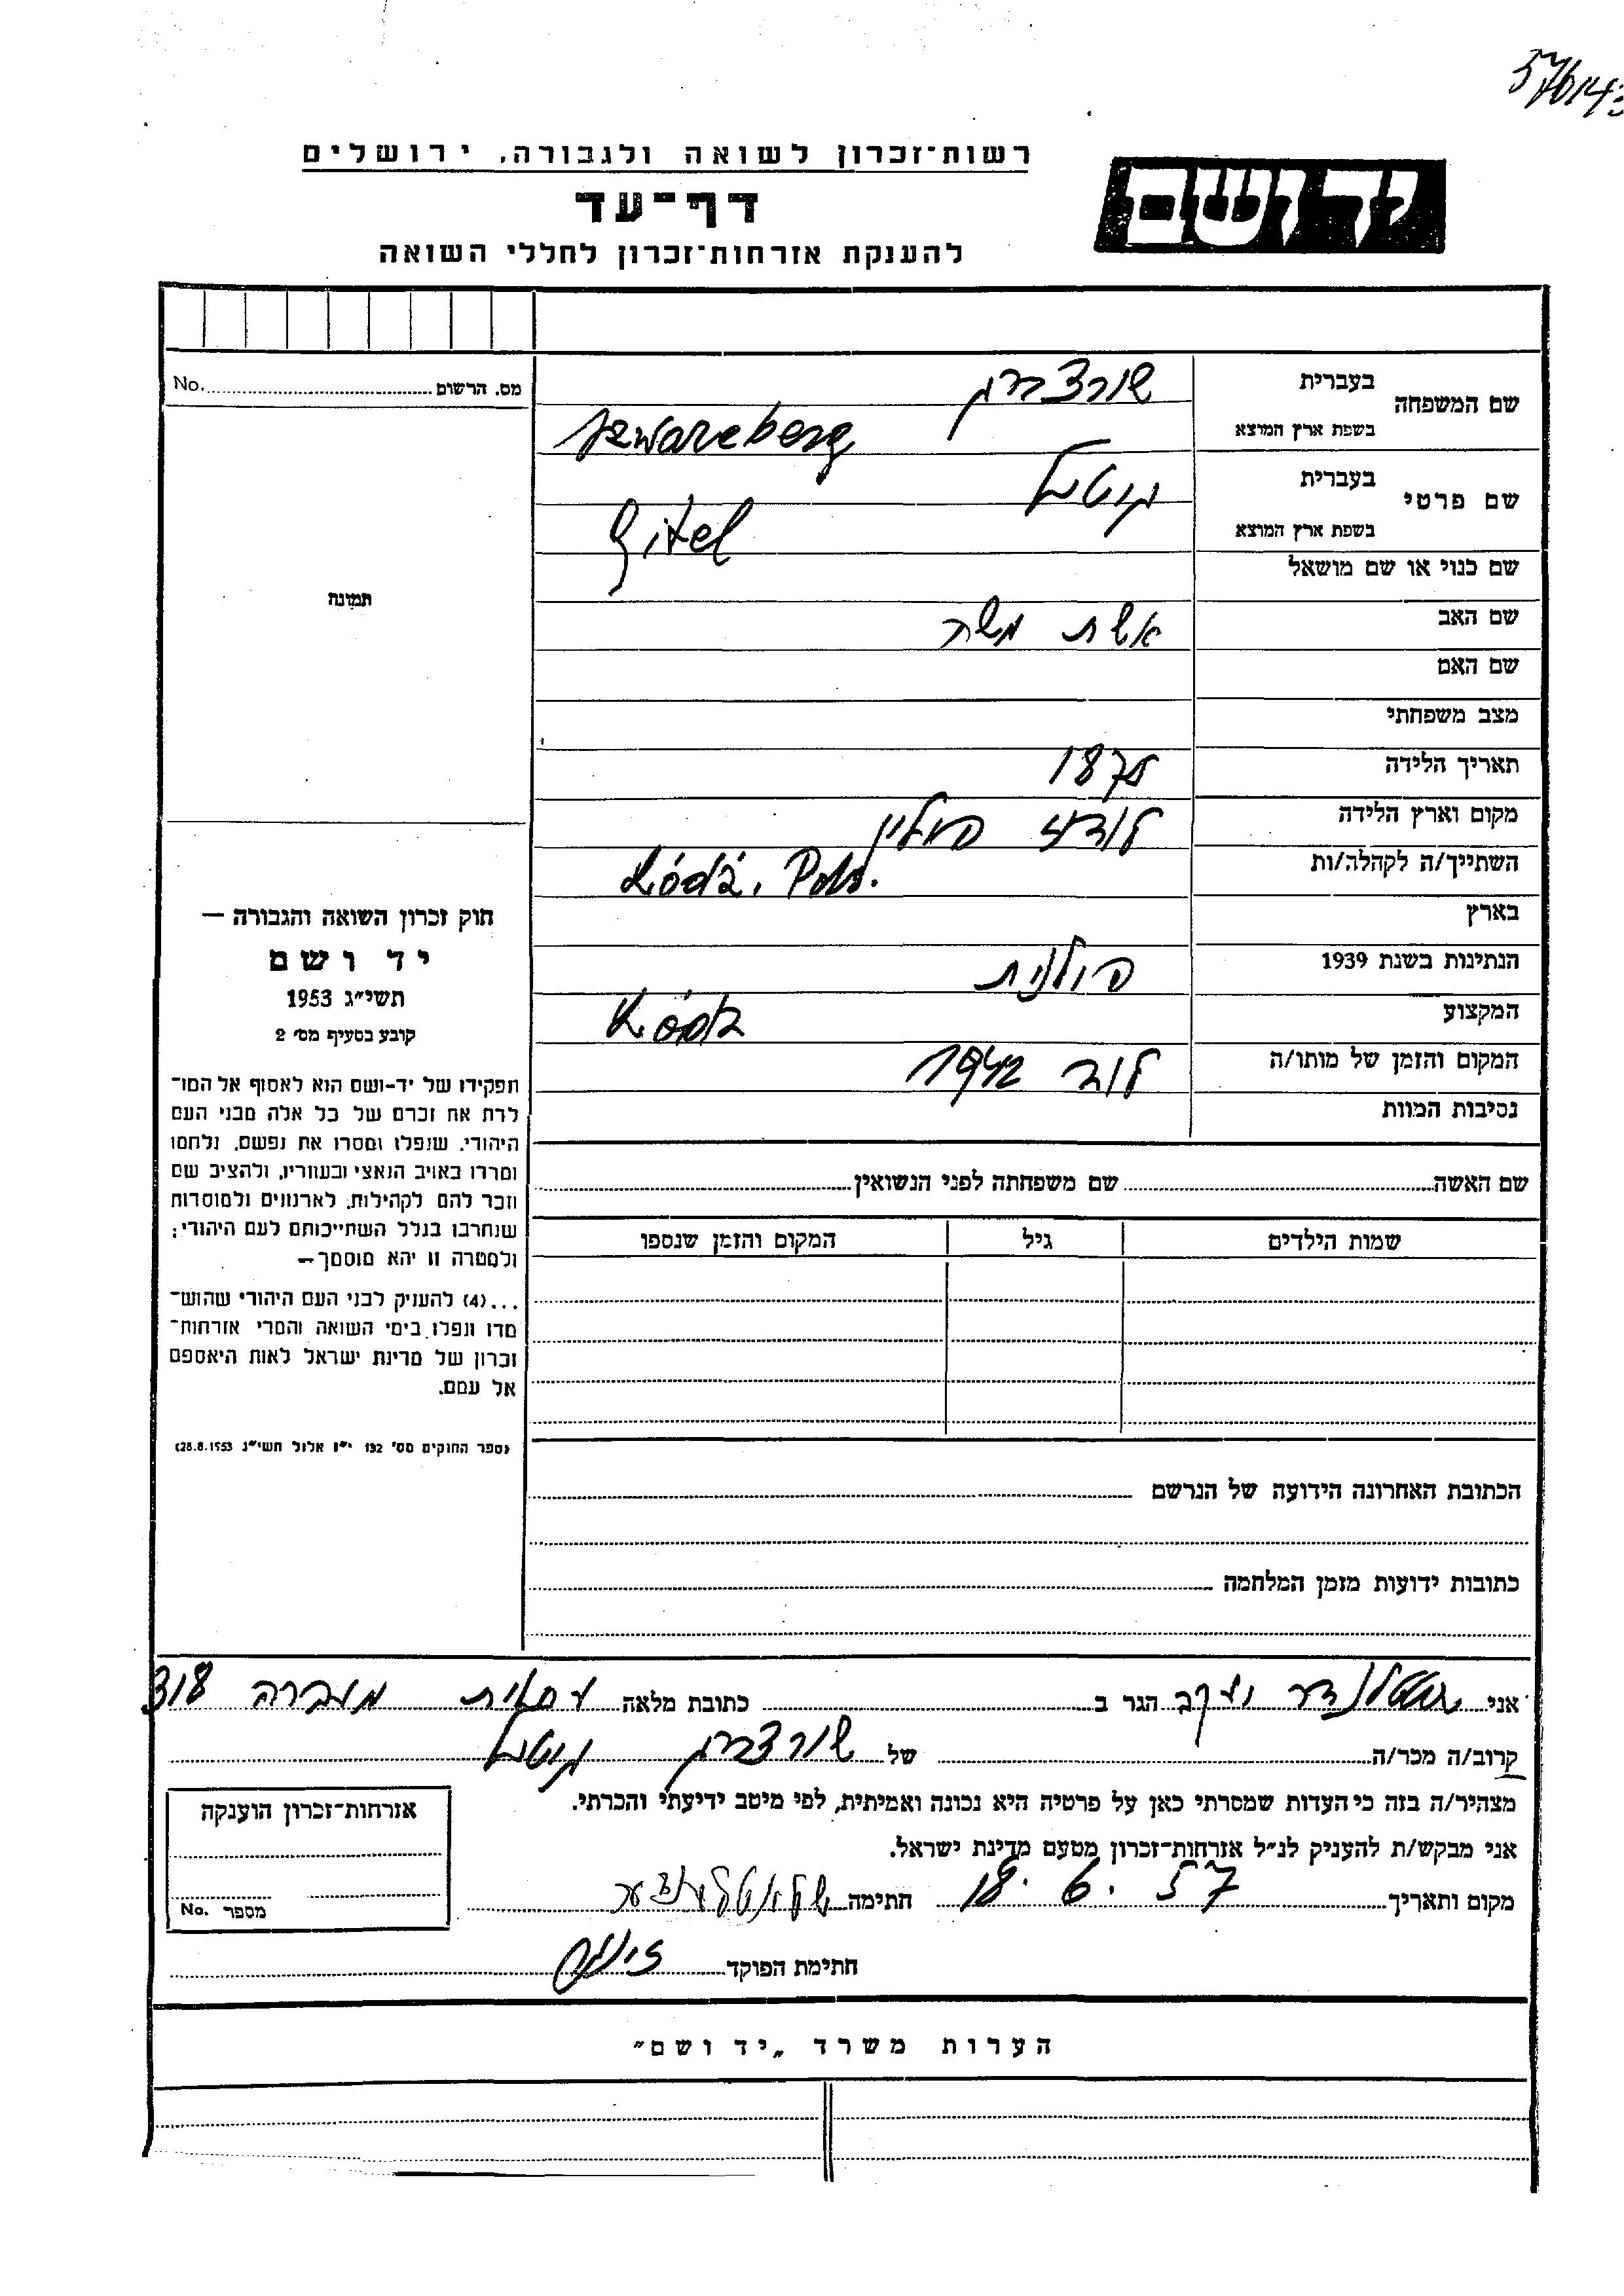 רשות־זכרון לשואה ולגבורה, ירושלים
יד ושם
דף־עד
להענקת אזרחות־זכרון לחללי השואה
מס. הרשום No.
שם המשפחה
בעברית שורצברג
בשפת ארץ המוצא Szwarcberg
שם פרטי
בעברית גיטל
בשפת ארץ המוצא Gitel
שם כנוי או שם מושאל
שם האב אשת משה
שם האם
מצב משפחתי
תאריך הלידה
מקום וארץ הלידה לודז פולין
השתייך/ה לקהלה/ות Łódź, Pols.
בארץ
הנתינות בשנת 1939 פולנית
המקצוע Łódź
המקום והזמן של מותו/ה לודז 1942
נסיבות המוות
תמונה
חוק זכרון השואה והגבורה —
יד ושם
תשי״ג 1953
קובע בסעיף מס׳ 2
תפקידו של יד-ושם הוא לאסוף אל המו־
לדת את זכרם של כל אלה מבני העם
היהודי, שנפלו ומסרו את נפשם, נלחמו
ומרדו באויב הנאצי ובעוזריו, ולהציב שם
וזכר להם לקהילות, לארגונים ולמוסדות
שנחרבו בגלל השתייכותם לעם היהודי;
ולמטרה זו יהא מוסמך—
...(4) להעניק לבני העם היהודי שהוש־
מדו ונפלו בימי השואה והמרי אזרחות־
זכרון של מדינת ישראל לאות היאספם
אל עמם.
(ספר החוקים מס׳ 132 י״ז אלול תשי״ג 28.8.1953)
שם האשה שם משפחתה לפני הנשואין
שמות הילדים גיל המקום והזמן שנספו
הכתובת האחרונה הידועה של הנרשם
כתובות ידועות מזמן המלחמה
אני יעקב הגר ב כתובת מלאה
קרוב/ה מכר/ה של שורצברג גיטל
מצהיר/ה בזה כי העדות שמסרתי כאן על פרטיה היא נכונה ואמיתית, לפי מיטב ידיעתי והכרתי.
אני מבקש/ת להעניק לנ״ל אזרחות־זכרון מטעם מדינת ישראל.
מקום ותאריך 18.6.57 חתימה
חתימת הפוקד
אזרחות־זכרון הוענקה
מספר No.
הערות משרד „יד ושם״